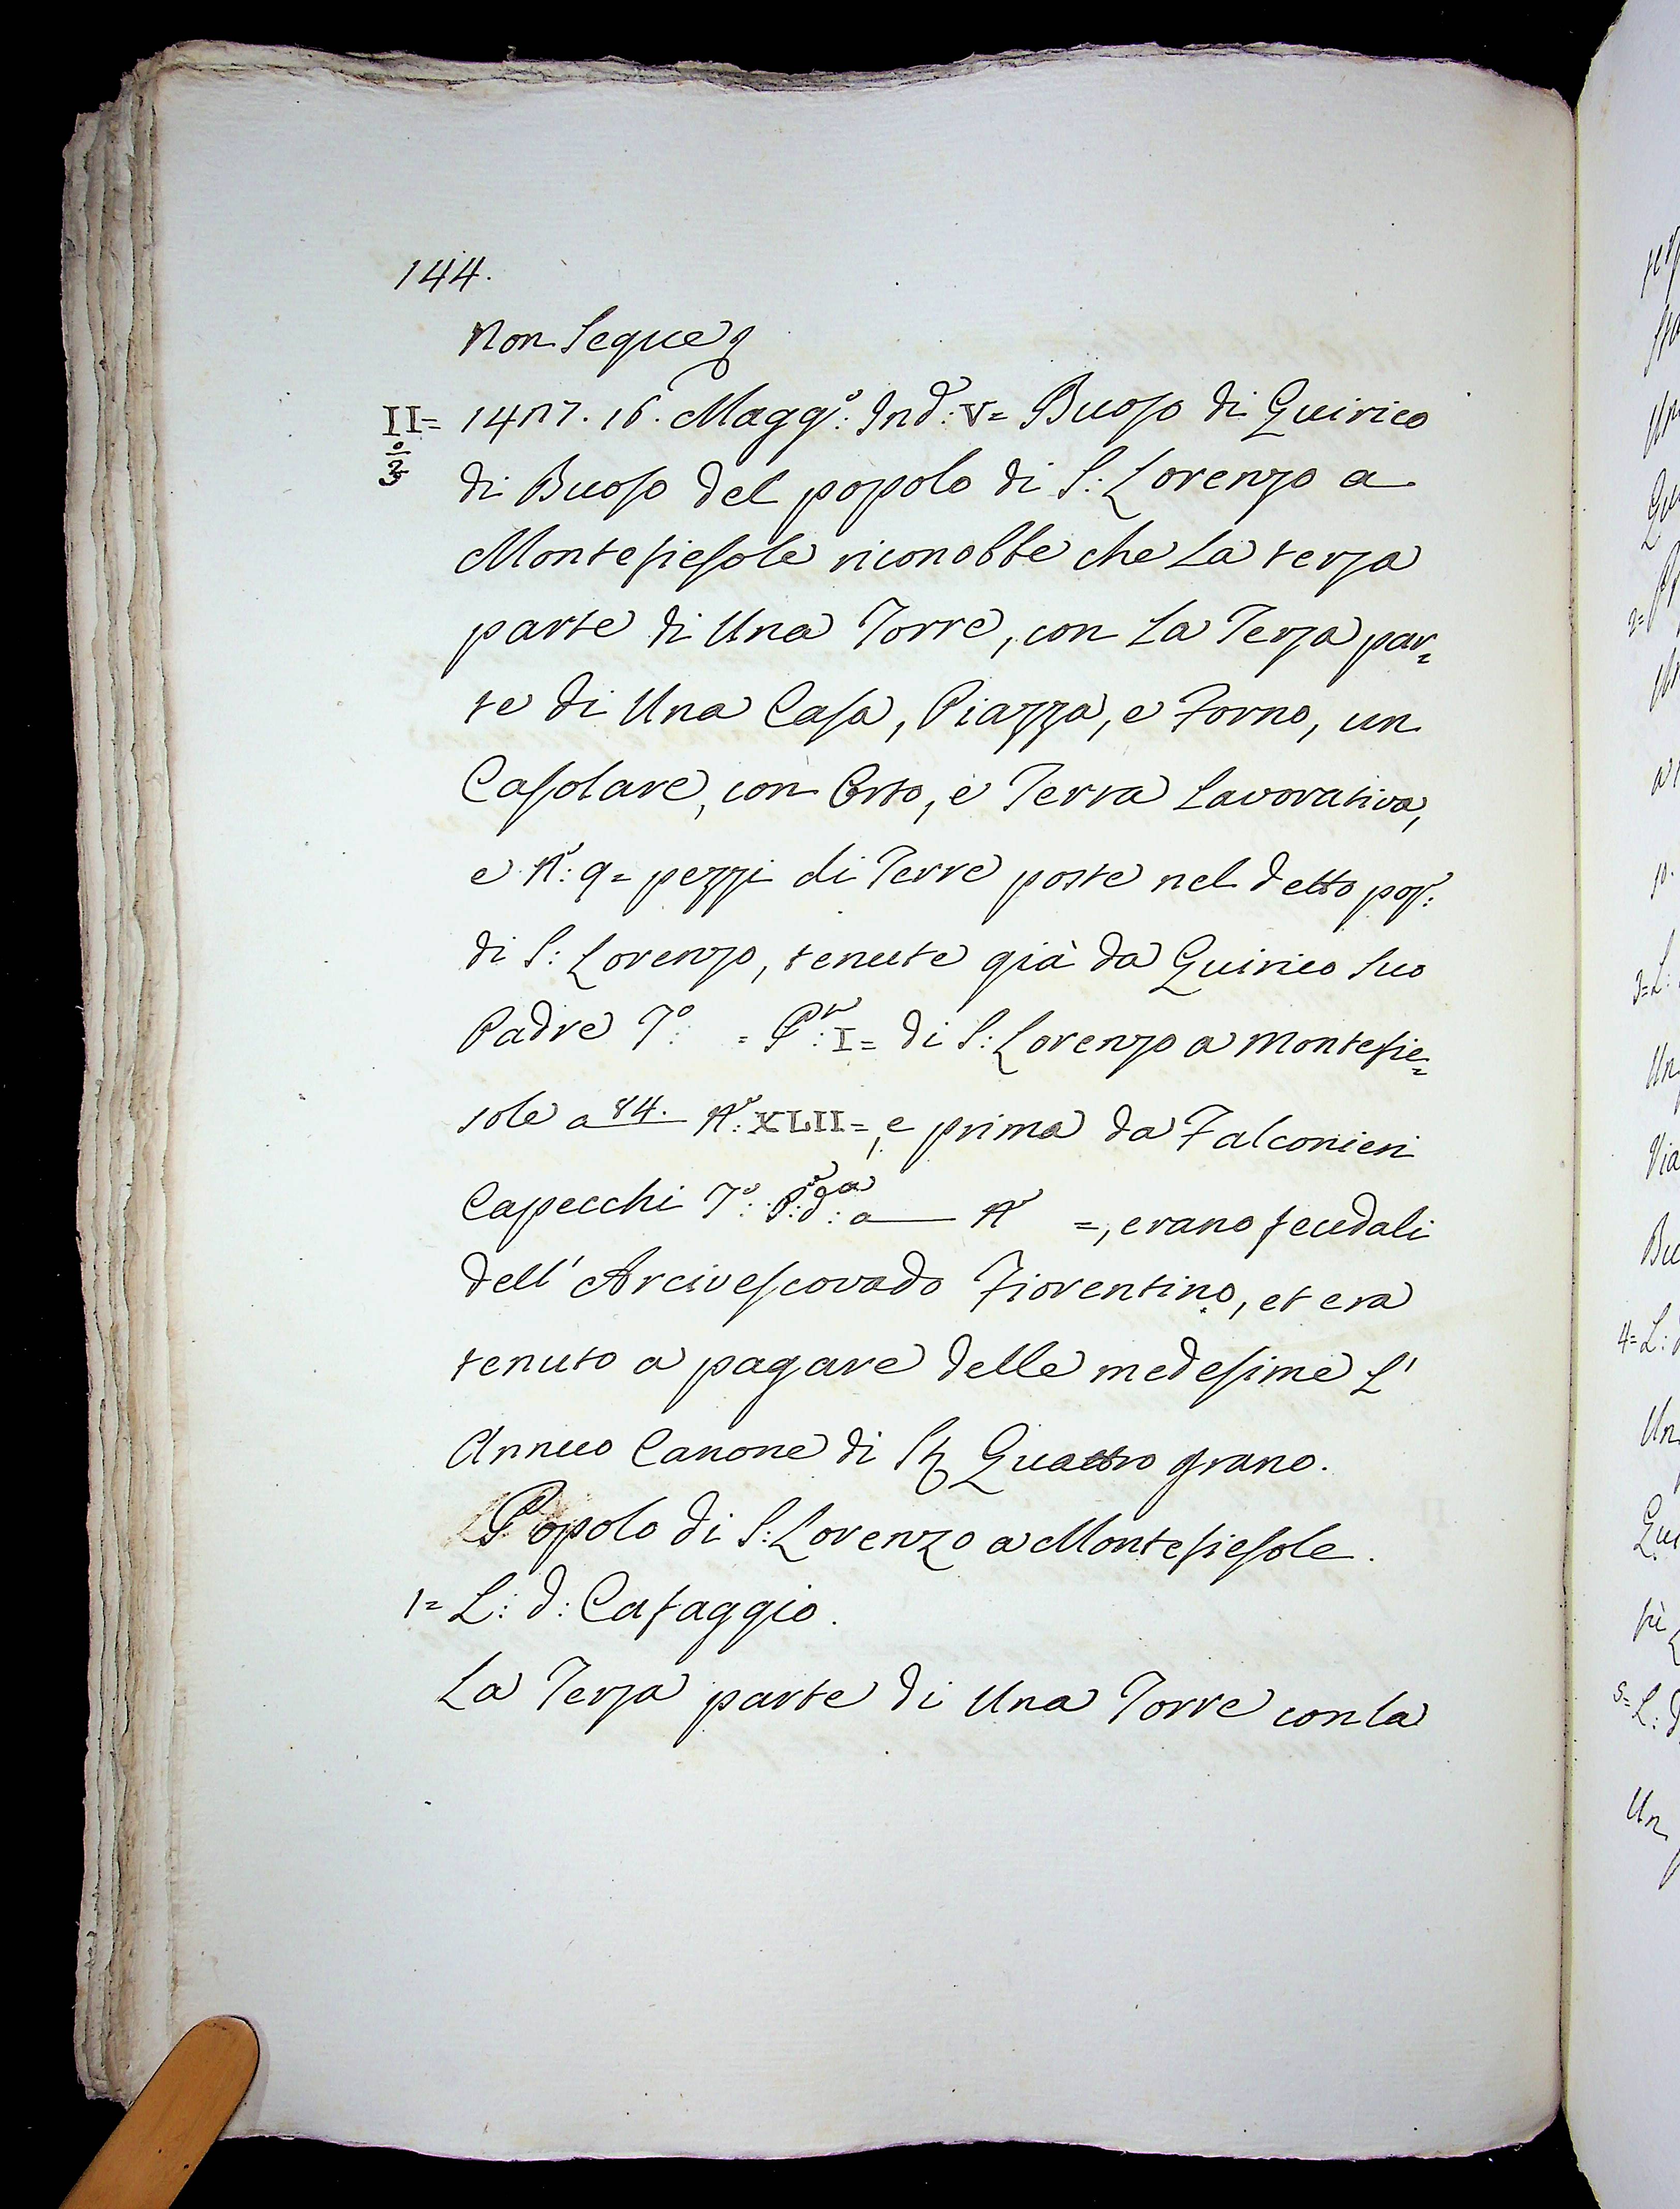 144.
Non Segue
II= 1427. 16. Magg:º Ind: V= Buoso di Quirico
di Buoso del popolo di S: Lorenzo a
Montefiesole riconobbe che La terza
parte di Una Torre, con La Terza par=
te di Una Casa, Piazza, e Forno, un
Casolare, con Orto, e Terra Lavorativa,
e N:º 9= pezzi di Terre poste nel detto pop:
di S: Lorenzo, tenute già da Quirico Suo
Padre Tº: = P: I= di S: Lorenzo a Montefie=
sole a 84. Nº: XLII=, e prima da Falconieri
Capecchi Tº: P: d: a Nº =, erano feudali
dell' Arcivescovado Fiorentino, et era
tenuto a pagare delle medesime L'
Annuo Canone di St Quattro grano.
Popolo di S: Lorenzo a Montefiesole.
1= L: d: Cafaggio.
La Terza parte di Una Torre con la